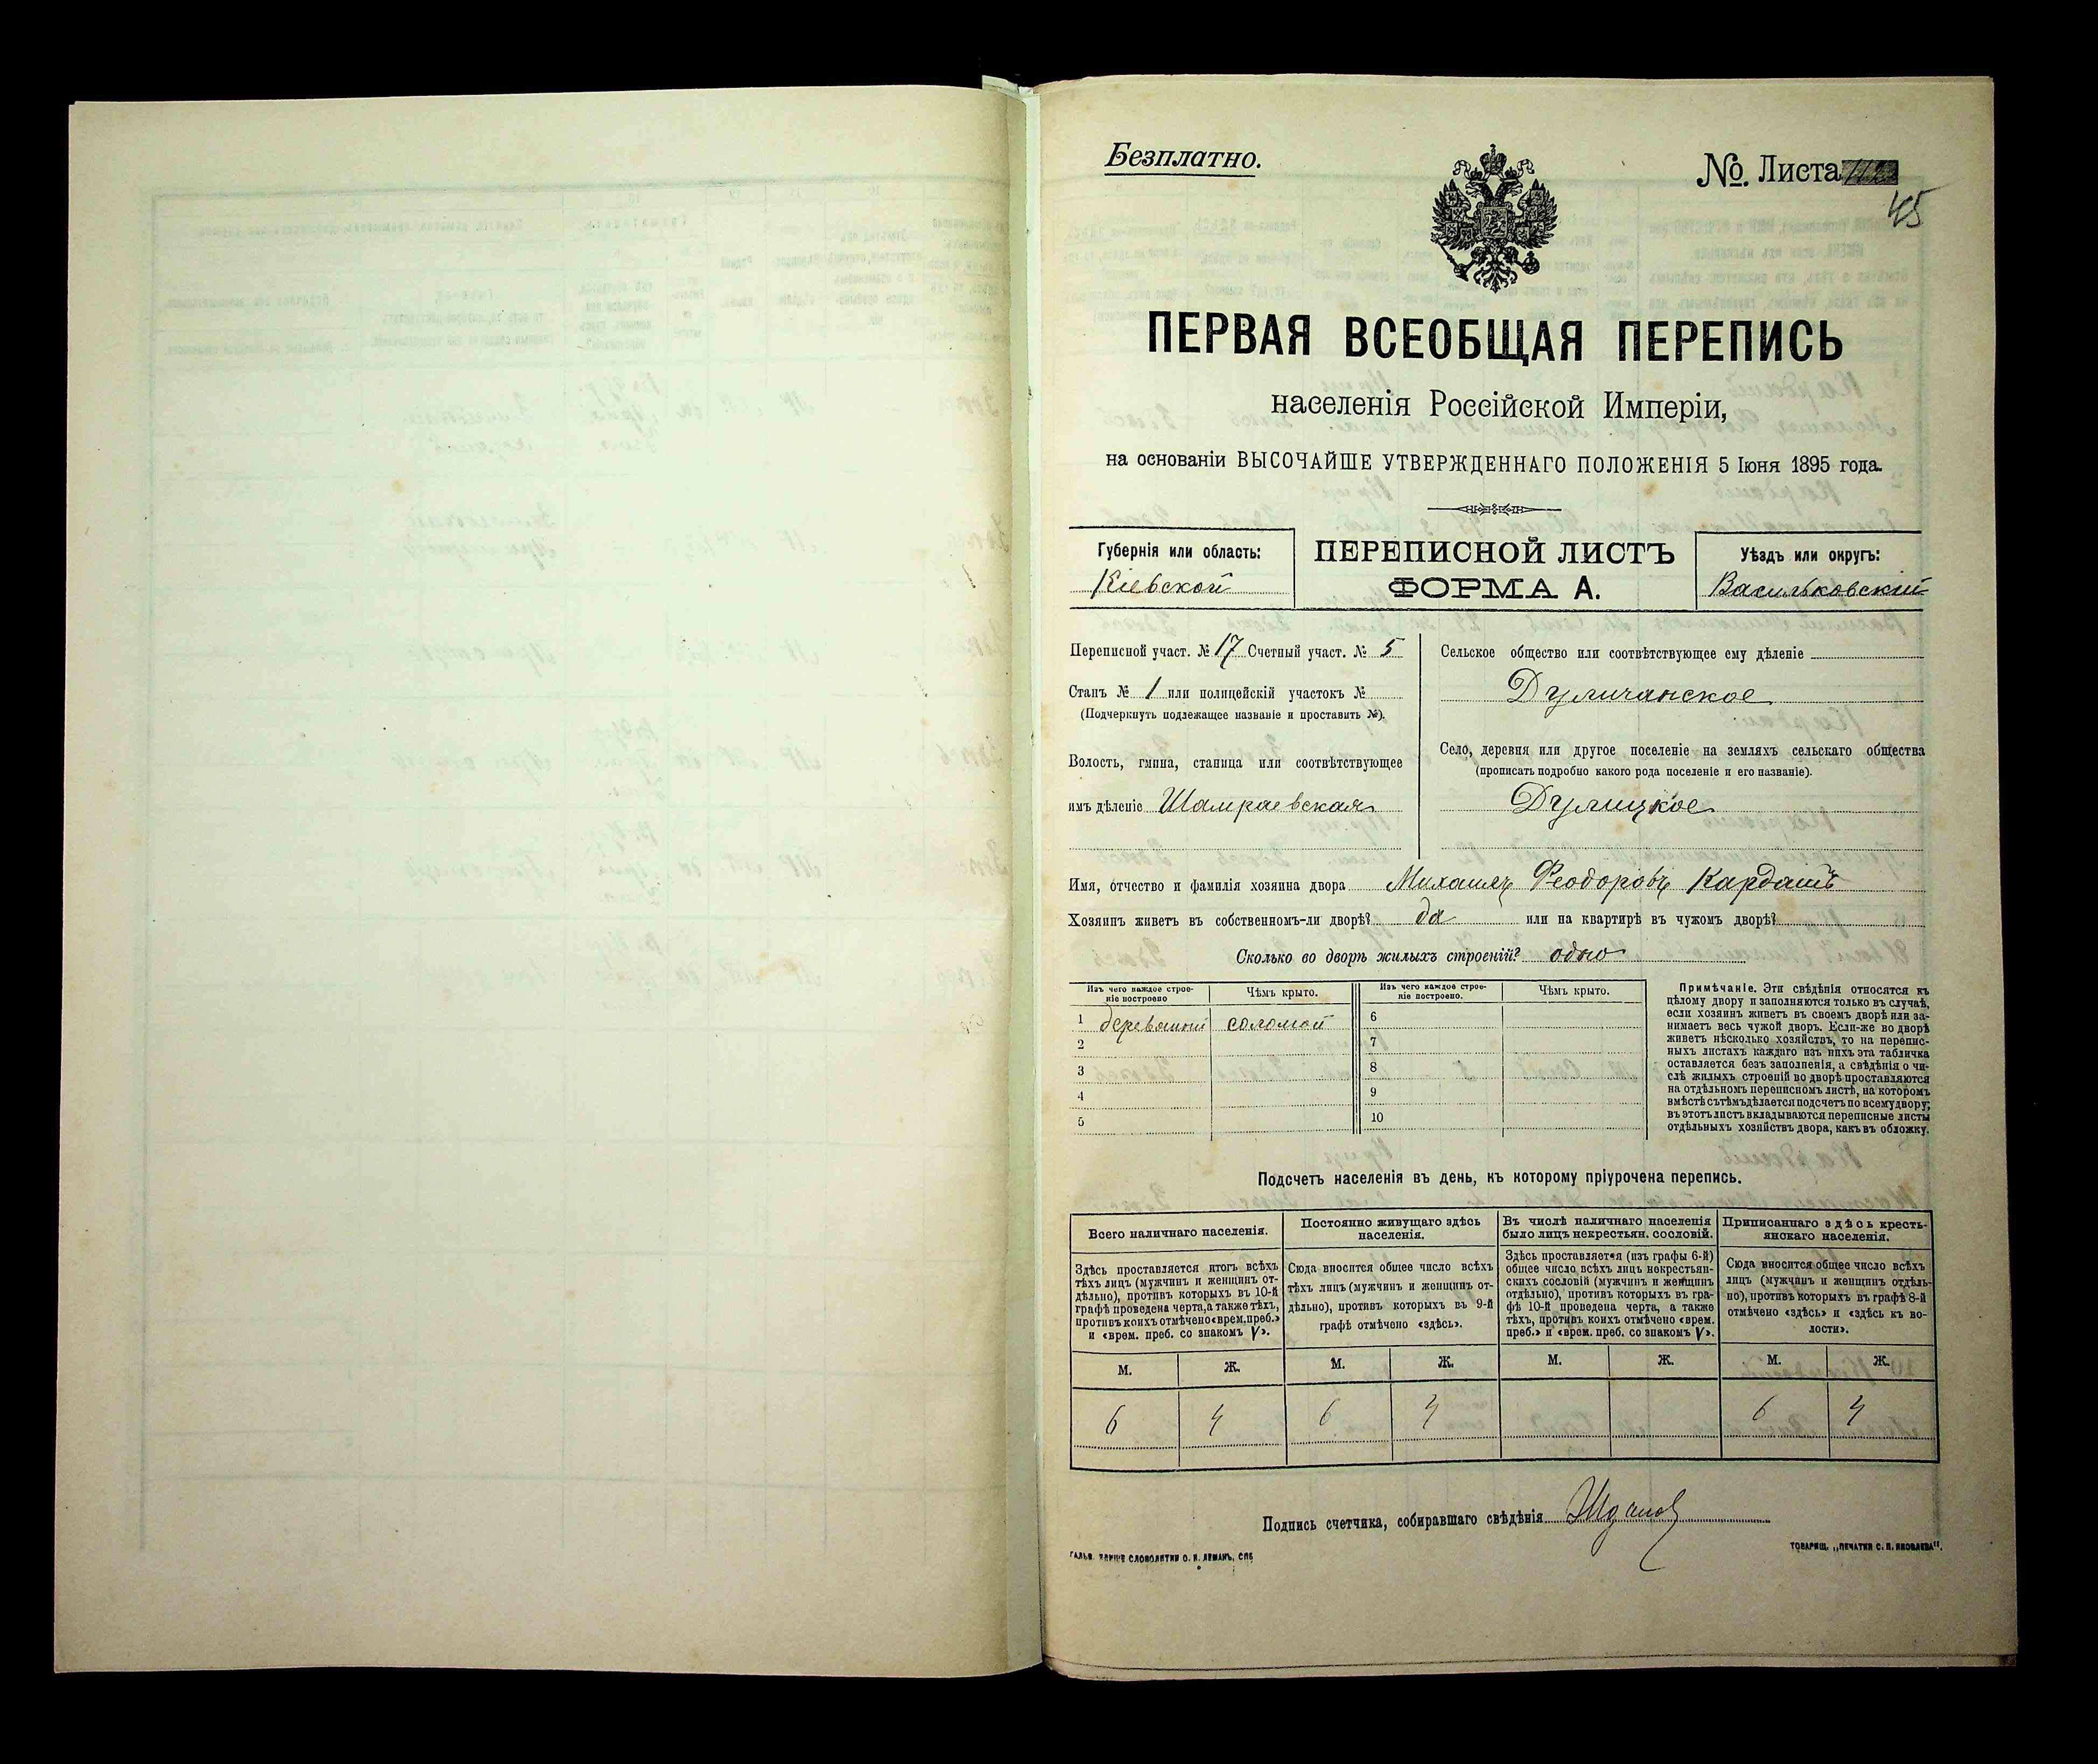 Безплатно.
№. Листа
45
ПЕРВАЯ ВСЕОБЩАЯ ПЕРЕПИСЬ
населенія Россійской Имперіи,
на основаніи ВЫСОЧАЙШЕ УТВЕРЖДЕННАГО ПОЛОЖЕНІЯ 5 Іюня 1895 года.
Губернія или область:
Кіевской
ПЕРЕПИСНОЙ ЛИСТЪ
ФОРМА А.
Уѣздъ или округъ:
Васильковскій
Переписной участ. № 17 Счетный участ. № 5
Станъ № 1 или полицейскій участокъ №
(Подчеркнуть подлежащее названіе и проставить №).
Волость, гмина, станица или соотвѣтствующее
имъ дѣленіе Шамраевская
Сельское общество или соотвѣтствующее ему дѣленіе
Дуличанское
Село, деревня или другое поселеніе на земляхъ сельскаго общества
(прописать подробно какого рода поселеніе и его названіе).
Дулицкое
Имя, отчество и фамилія хозяина двора Михаилъ Феодоровъ Кардашъ
Хозяинъ живетъ въ собственномъ-ли дворѣ? да или на квартирѣ въ чужомъ дворѣ?
Сколько во дворѣ жилыхъ строеній? одно
Изъ чего каждое строе-
ніе построено
Чѣмъ крыто.
Изъ чего каждое строе-
ніе построено.
Чѣмъ крыто.
1 деревянный соломой
2
3
4
5
6
7
8
9
10
Примѣчаніе. Эти свѣдѣнія относятся къ
цѣлому двору и заполняются только въ случаѣ,
если хозяинъ живетъ въ своемъ дворѣ или за-
нимаетъ весь чужой дворъ. Если-же во дворѣ
живетъ нѣсколько хозяйствъ, то на перепис-
ныхъ листахъ каждаго изъ нихъ эта табличка
оставляется безъ заполненія, а свѣдѣнія о чи-
слѣ жилыхъ строеній во дворѣ проставляются
на отдѣльномъ переписномъ листѣ, на которомъ
вмѣстѣ съ тѣмъ дѣлается подсчетъ по всему двору;
въ этотъ листъ вкладываются переписные листы
отдѣльныхъ хозяйствъ двора, какъ въ обложку.
Подсчетъ населенія въ день, къ которому пріурочена перепись.
Всего наличнаго населенія.
Здѣсь проставляется итогъ всѣхъ
тѣхъ лицъ (мужчинъ и женщинъ от-
дѣльно), противъ которыхъ въ 10-й
графѣ проведена черта, а также тѣхъ,
противъ коихъ отмѣчено «врем. преб.»
и «врем. преб. со знакомъ V».
Постоянно живущаго здѣсь
населенія.
Сюда вносится общее число всѣхъ
тѣхъ лицъ (мужчинъ и женщинъ от-
дѣльно), противъ которыхъ въ 9-й
графѣ отмѣчено «здѣсь».
Въ числѣ наличнаго населенія
было лицъ некрестьян. сословій.
Здѣсь проставляется (изъ графы 6-й)
общее число всѣхъ лицъ некрестьян-
скихъ сословій (мужчинъ и женщинъ
отдѣльно), противъ которыхъ въ гра-
фѣ 10-й проведена черта, а также
тѣхъ, противъ коихъ отмѣчено «врем.
преб.» и «врем. преб. со знакомъ V».
Приписаннаго здѣсь кресть-
янскаго населенія.
Сюда вносится общее число всѣхъ
лицъ (мужчинъ и женщинъ отдѣль-
но), противъ которыхъ въ графѣ 8-й
отмѣчено «здѣсь» и «здѣсь къ во-
лости».
М. Ж. М. Ж. М. Ж. М. Ж.
6 4 6 4 6 4
Подпись счетчика, собиравшаго свѣдѣнія
СЛОВОЛИТНИ О. И. ЛЕМАНЪ, СПБ
ТОВАРИЩ. „ПЕЧАТНЯ С. П. ЯКОВЛЕВА".